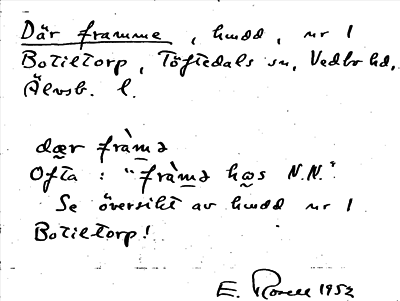 Där framme, hmdd, nr 1
Botiltorp, Töftedals sn, Vedbo hd,
Älvsb. l.
dær fràmə
Ofta: "fràmə hos N.N."
Se översikt av hmdd nr 1
Botiltorp!
E. Rosell 1952